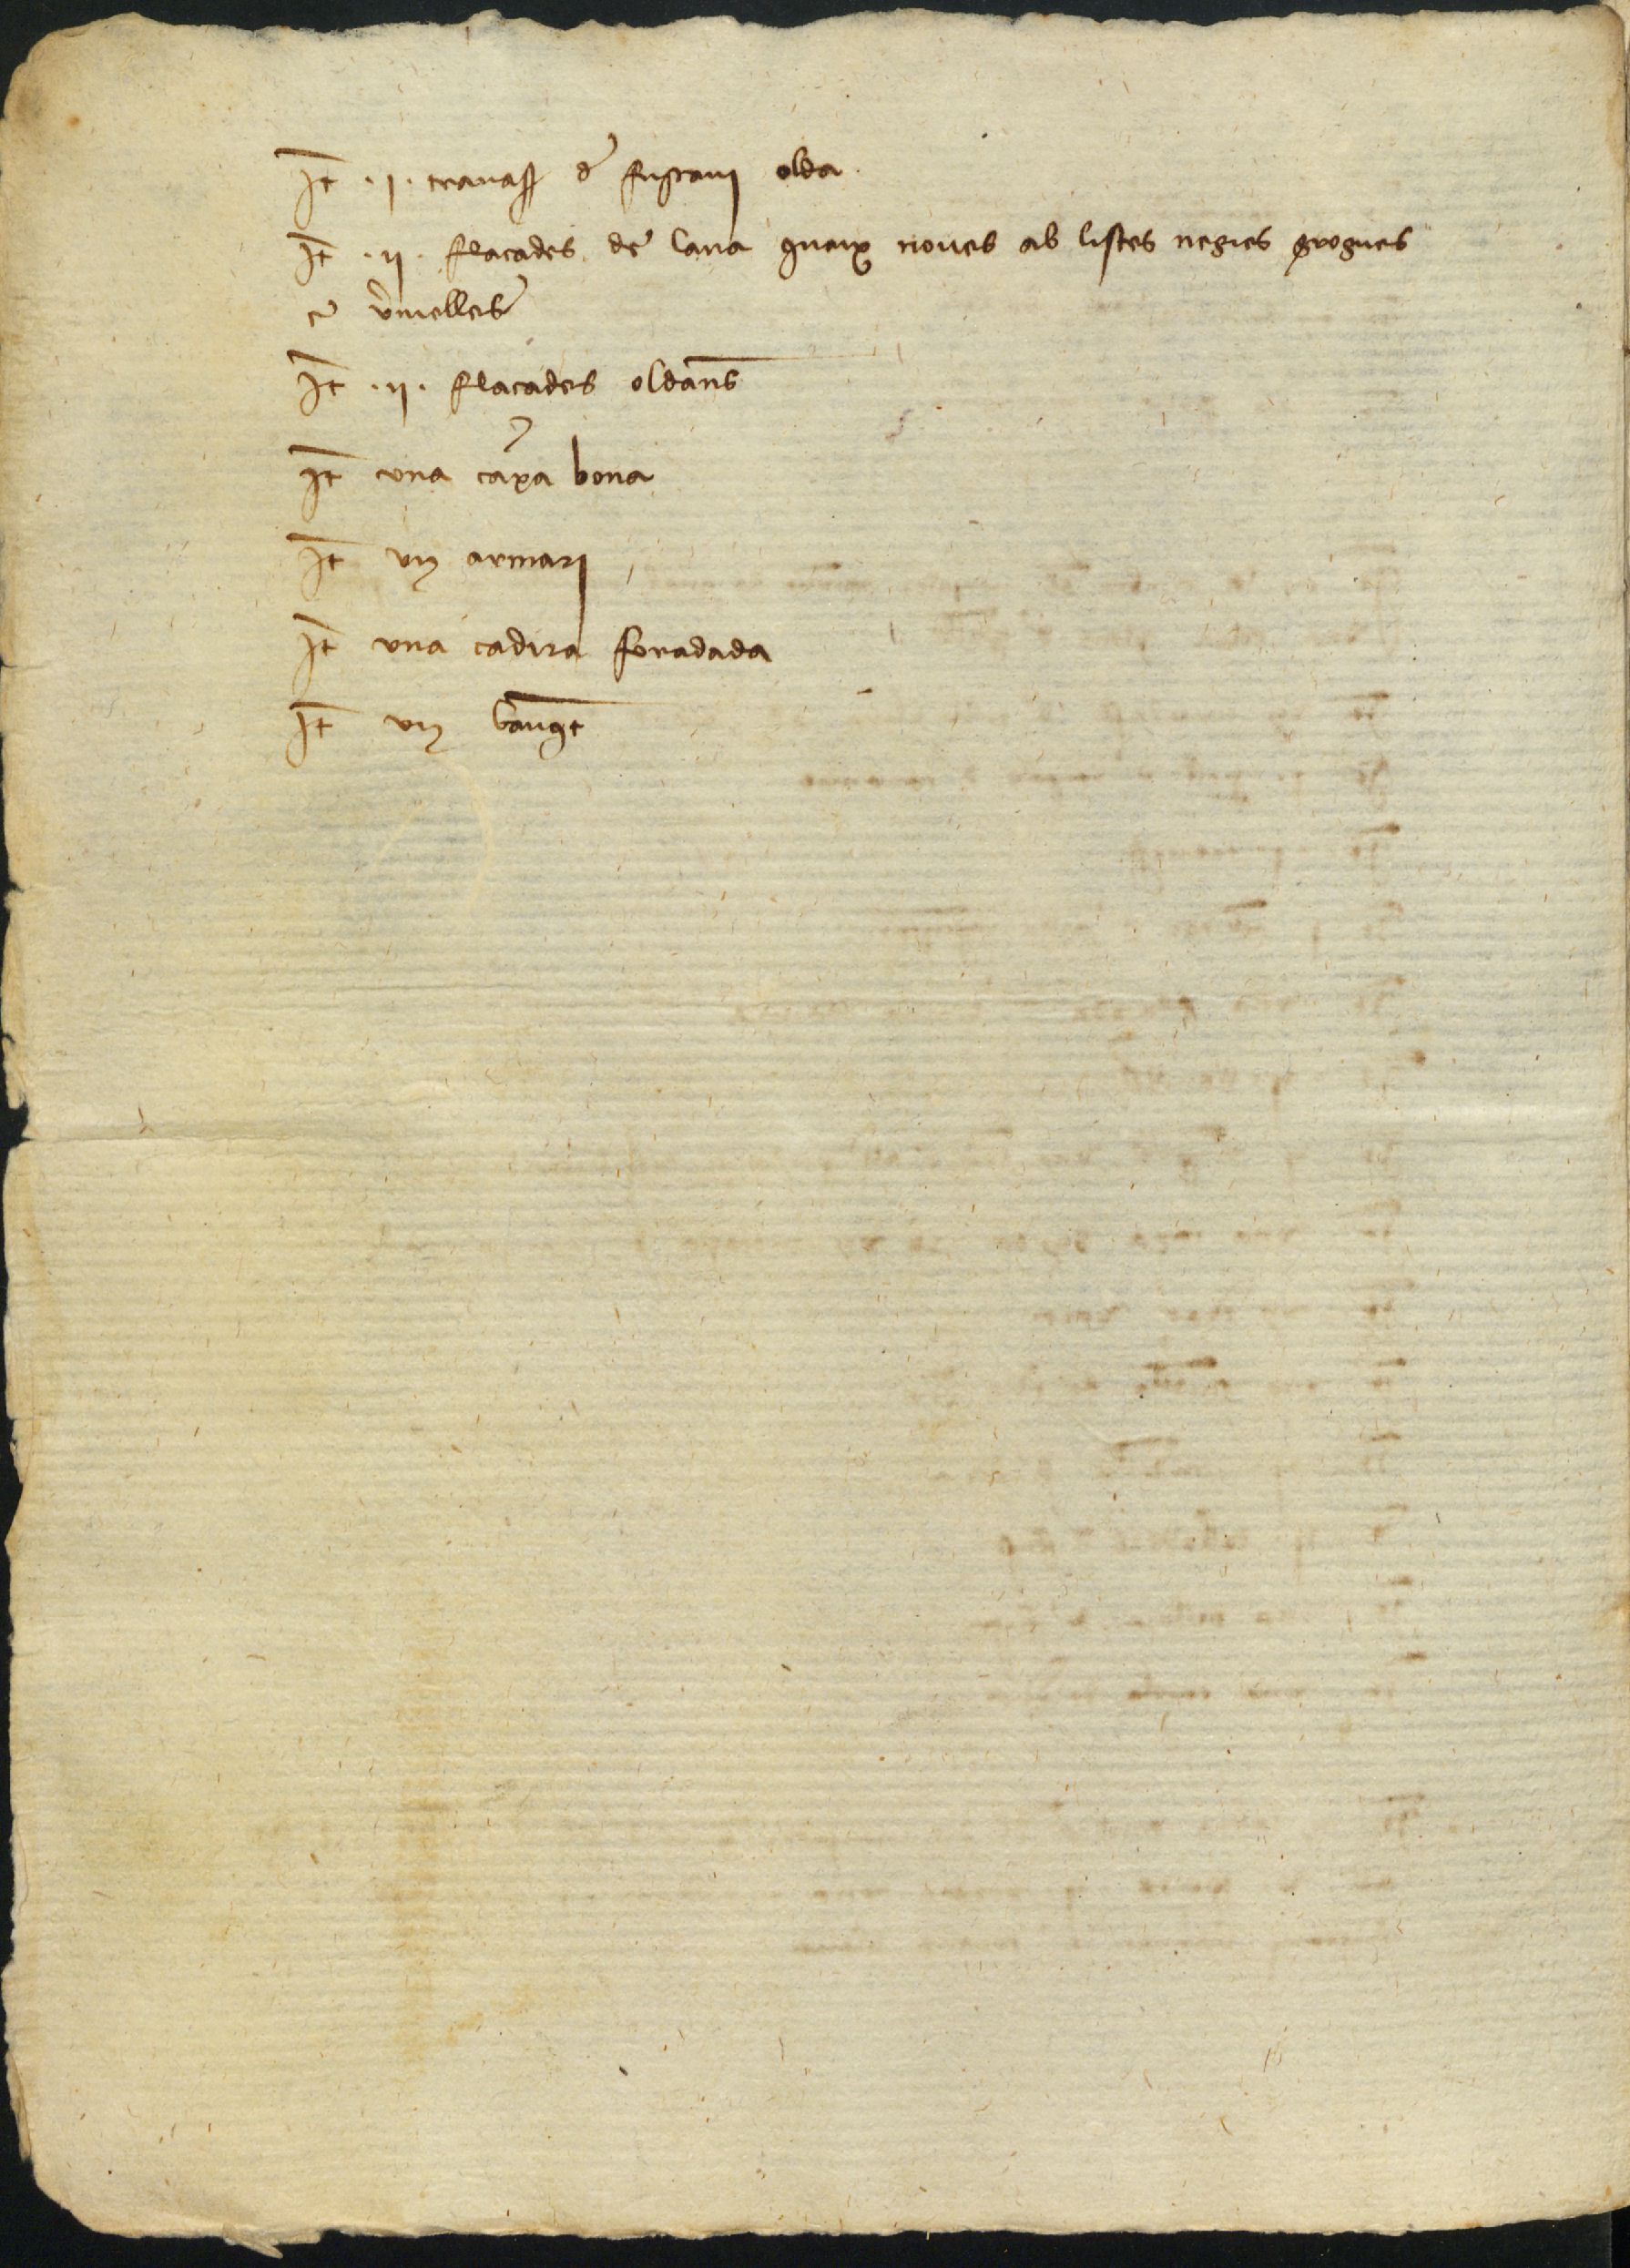 It .i. travaß de fustani olda
It .ii. flacades de lana quaix noues ab listes negres grogues
e vmelles
It .ii. flacades oldans
It vna caxa bona
It vn armari
It vna cadira foradada
It vn banquet